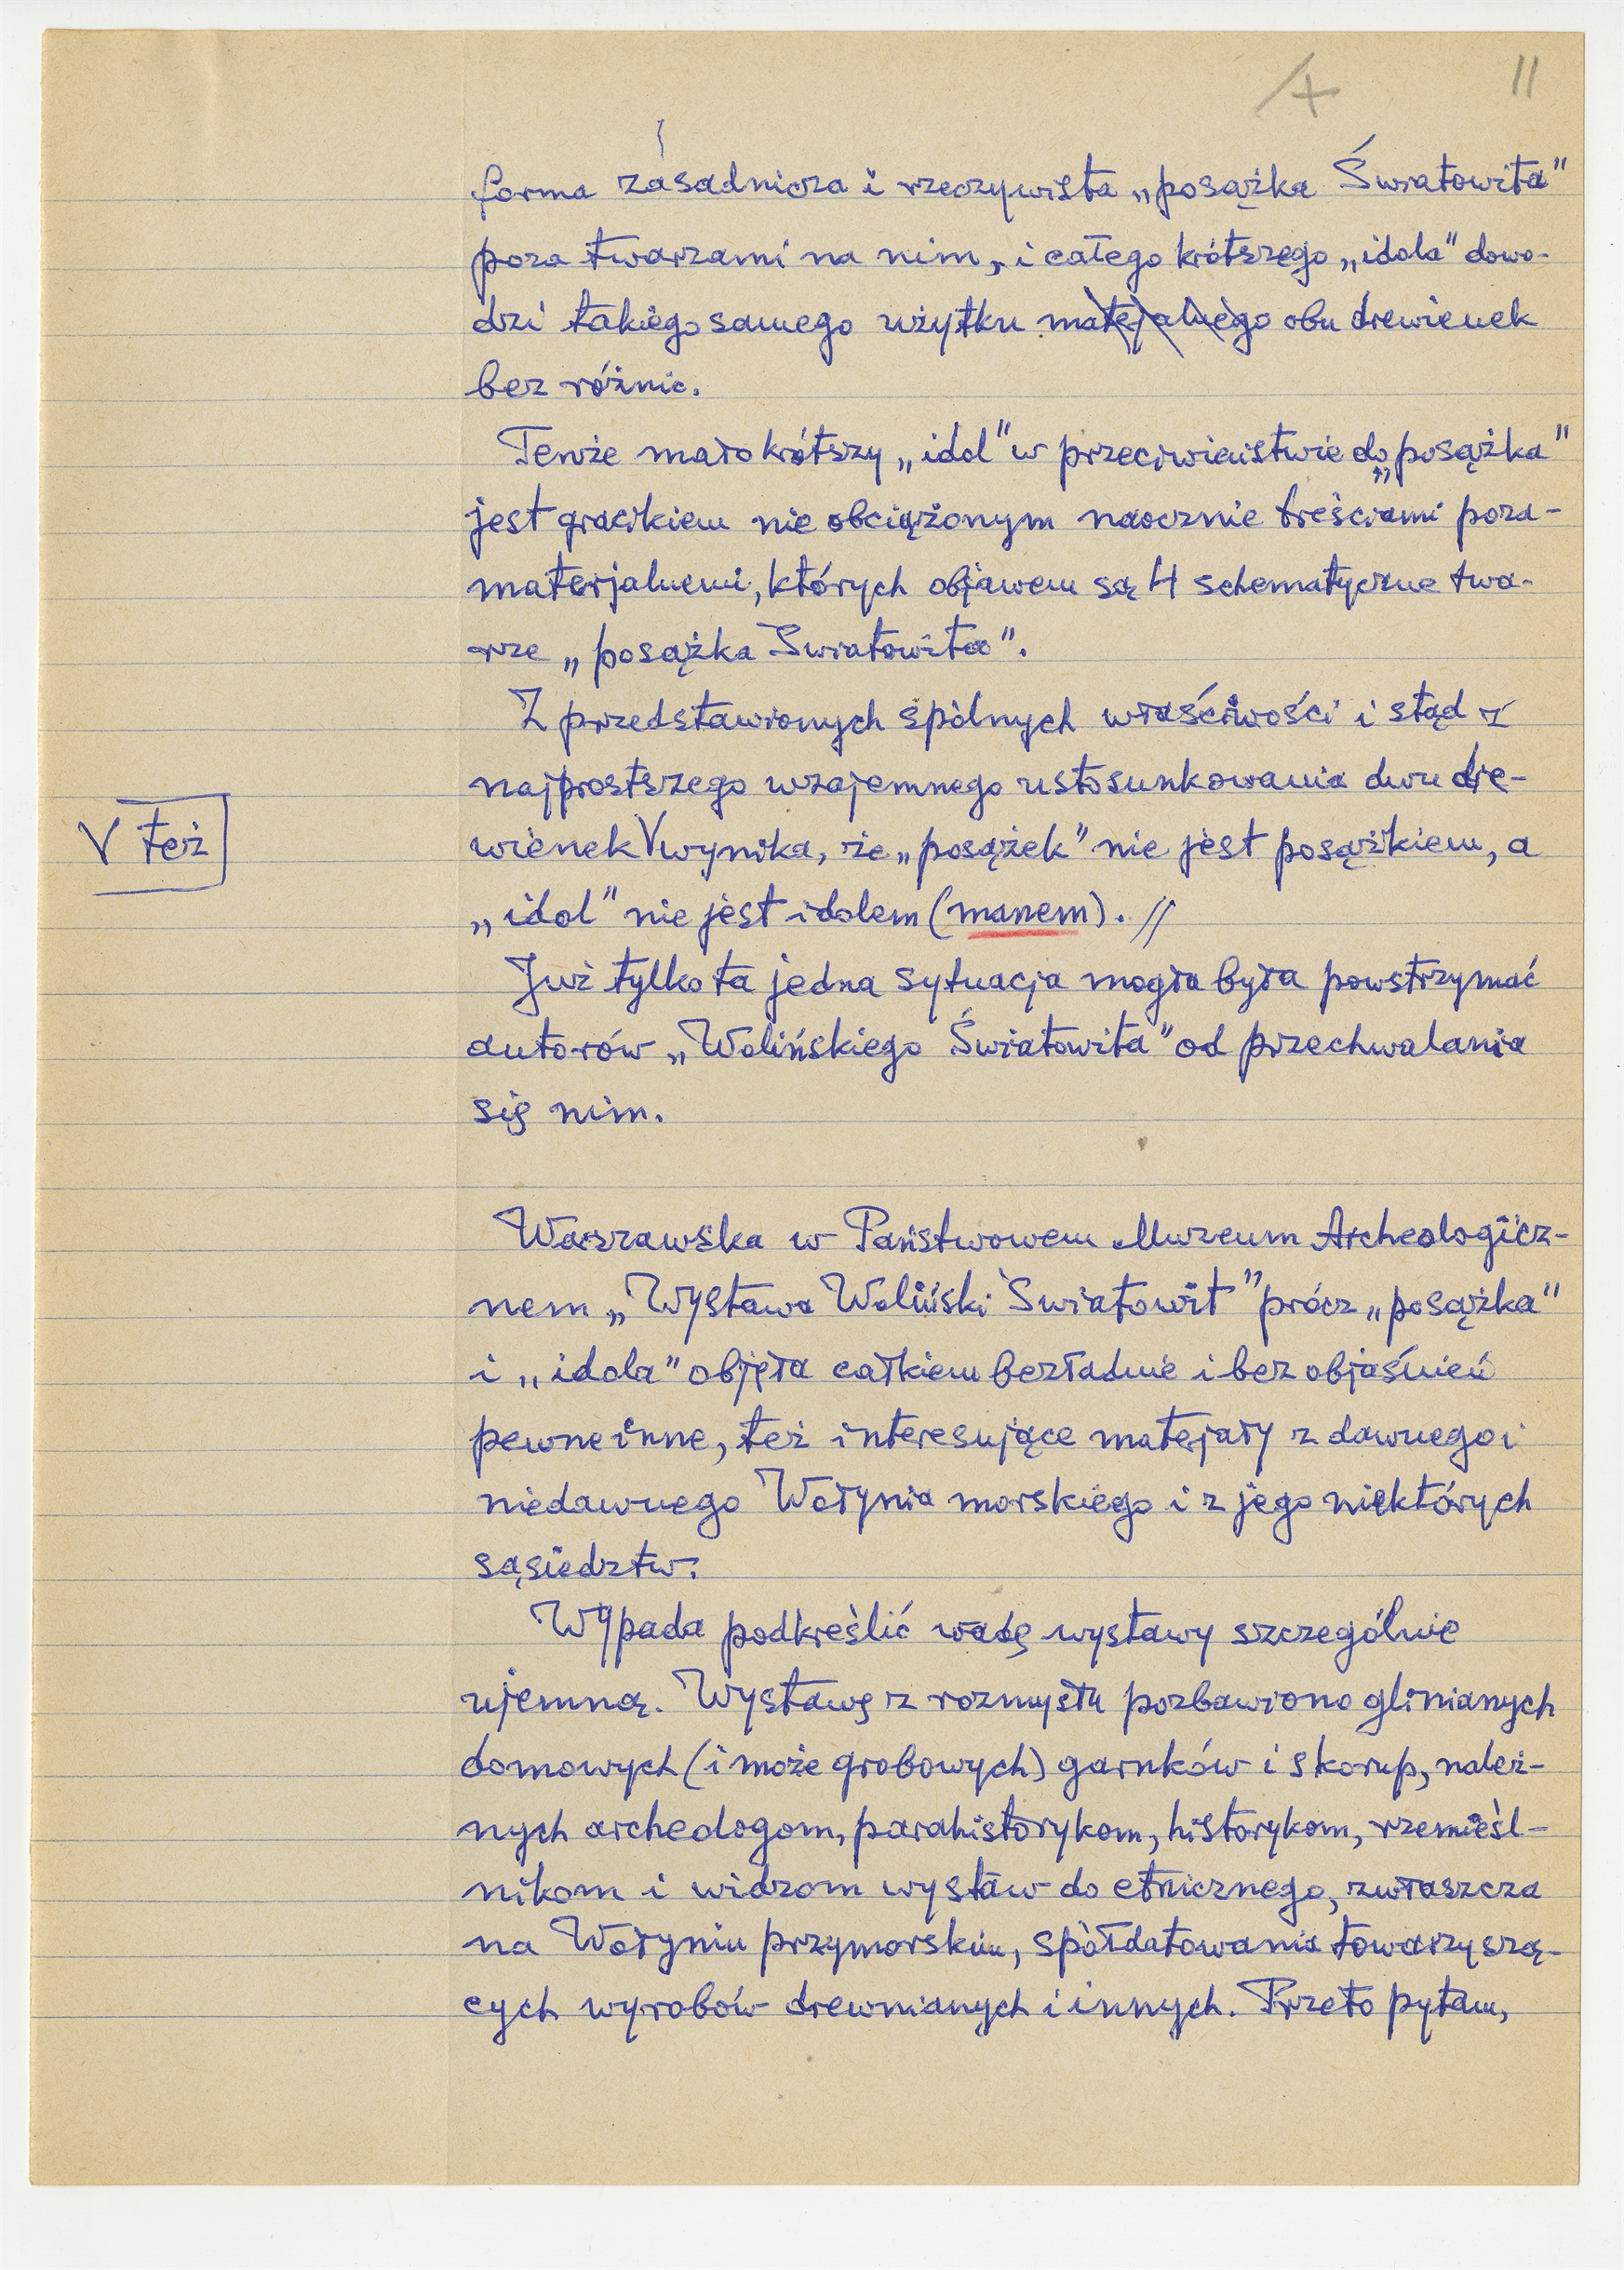 11
forma zasadnicza i rzeczywista „posążka Światowita”
poza twarzami na nim, i całego krótszego „idola” dowo-
dzi takiego samego użytku materjalnego obu drewienek
bez różnic.
Tenże mało krótszy „idol” w przeciwieństwie do „posążka”
jest gracikiem nie obciążonym naocznie treściami poza-
materjalnemi, których objawem są 4 schematyczne twa-
rze „posążka Światowita”.
Z przedstawionych spólnych właściwości i stąd z
najprostszego wzajemnego ustosunkowania dwu dre-
V też
wienek V wynika, że „posążek” nie jest posążkiem, a
„idol” nie jest idolem (manem). //
Już tylko ta jedna sytuacja mogła była powstrzymać
autorów „Wolińskiego Światowita” od przechwalania
się nim.
Warszawska w Państwowem Muzeum Archeologicz-
nem „Wystawa Woliński Światowit” prócz „posążka”
i „idola” objęła całkiem bezładnie i bez objaśnień
pewne inne, też interesujące materjały z dawnego i
niedawnego Wołynia morskiego i z jego niektórych
sąsiedztw.
Wypada podkreślić wadę wystawy szczególnie
ujemną. Wystawę z rozmysłu pozbawiono glinianych
domowych (i może grobowych) garnków i skorup, należ-
nych archeologom, parahistorykom, historykom, rzemieśl-
nikom i widzom wystaw do etnicznego, zwłaszcza
na Wołyniu przymorskim, spółdatowania towarzyszą-
cych wyrobów drewnianych i innych. Przeto pytam,